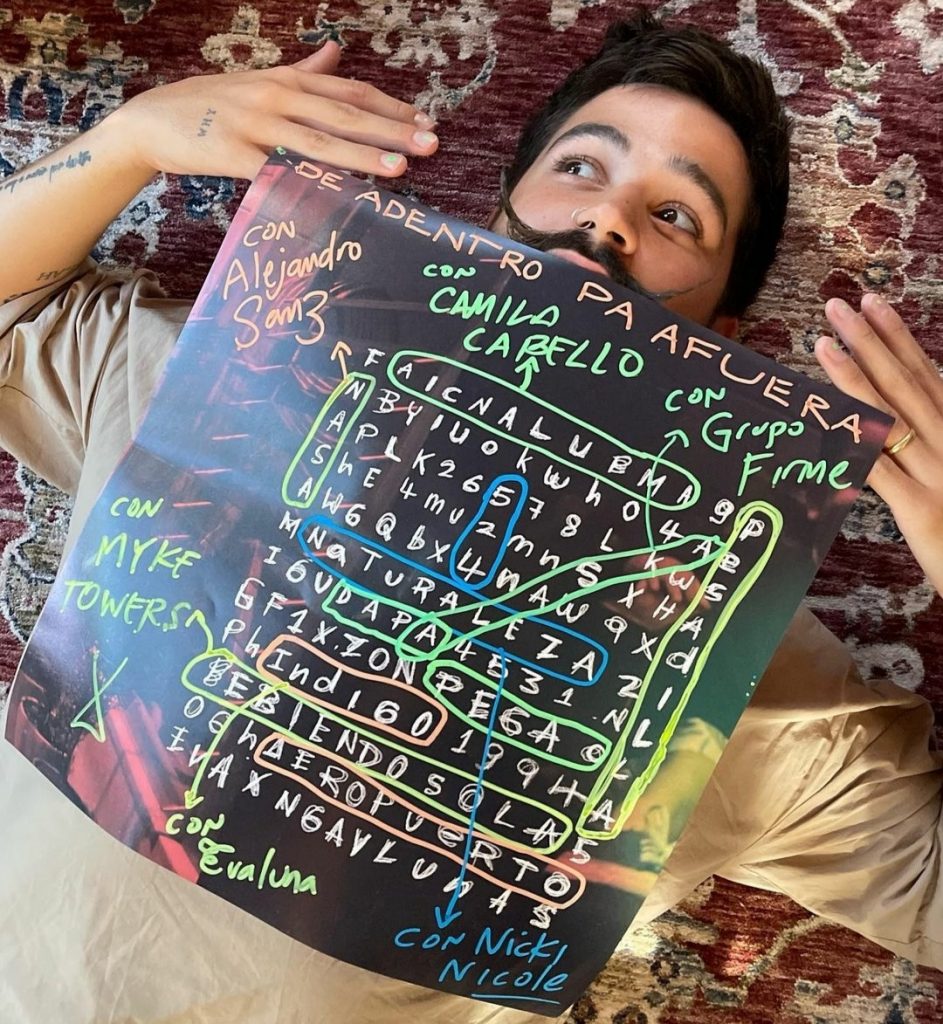 DE ADENTRO PA AFUERA
CON
Alejandro
Sanz
CON
CAMILA
CABELLO
CON
Grupo
Firme
F A I C N A L U B M A 9 P
N B Y I U O K W h O 4 A e
A P L K 2 6 5 7 8 L K W S
S h E 4 m u 2 m n S X H A
A W 6 Q b X 4 n A W 9 X d
M N a T U R A L E Z A Z I
I 6 U D A P A 4 5 3 1 N L
G F 1 X Z O N P E G A O L
P h I n d I G O 1 9 9 4 A
B E B I E N D O S O L A 5
O G h A E R O P U E R T O
I N A X N G A V L U N A S
CON
MYKE
TOWERS
CON
Evaluna
CON NICKI
NICOLE